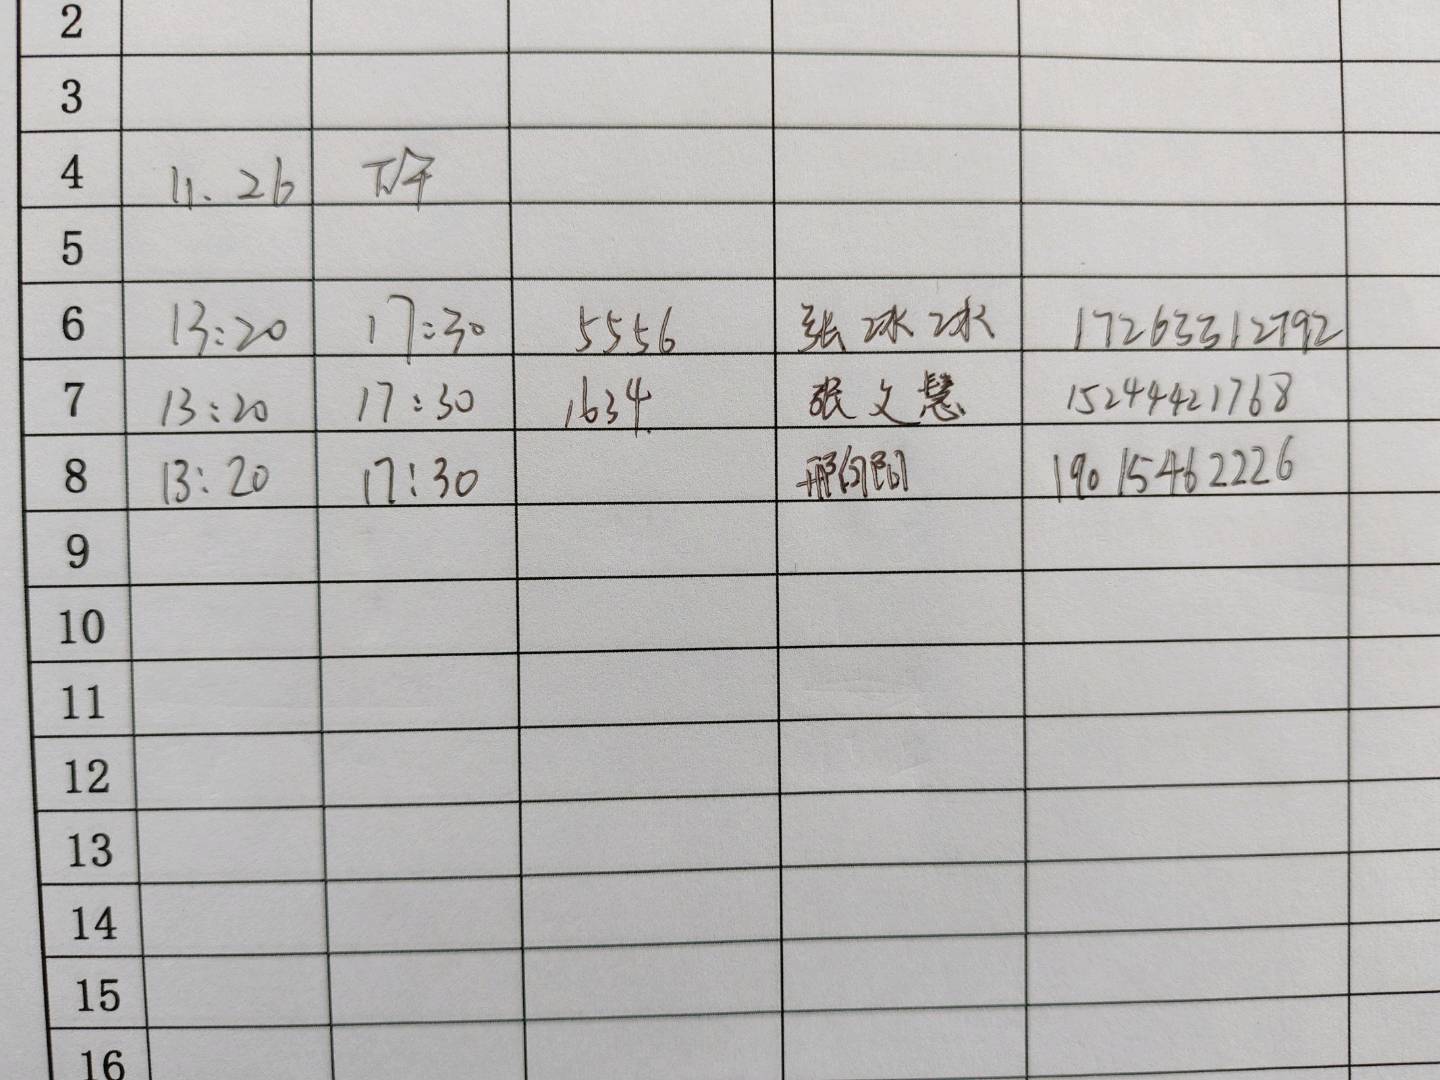 2
3
4 11.26 下午
5
6 13:20 17:30 5556 张冰冰 17263312792
7 13:20 17:30 1634 张文慧 15244421768
8 13:20 17:30 邢向阳 19015462226
9
10
11
12
13
14
15
16